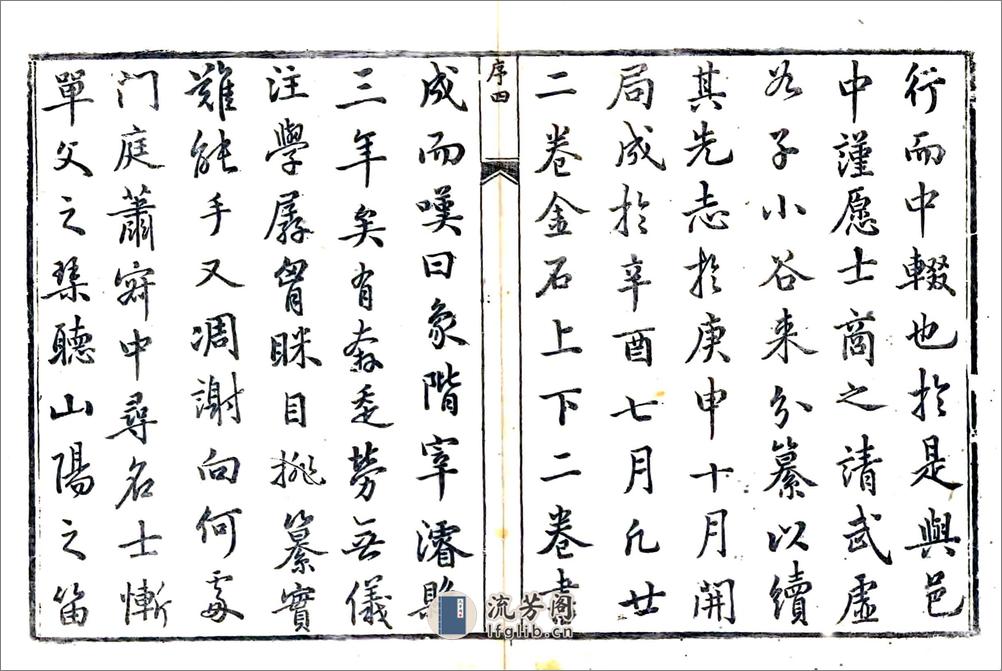 行而中輟也於是與邑
中謹愿士商之請武虛
谷子小谷来分纂以續
其先志於庚申十月開
局成於辛酉七月凡廿
二卷金石上下二卷書
序四
成而嘆曰象階宰濬縣
三年矣有奔走勞無儀
注學孱眯目挑纂實
難能手又凋謝向何處
門庭蕭寂中尋名士慚
單父之琴聽山陽之笛
流芳阁
lfglib.cn